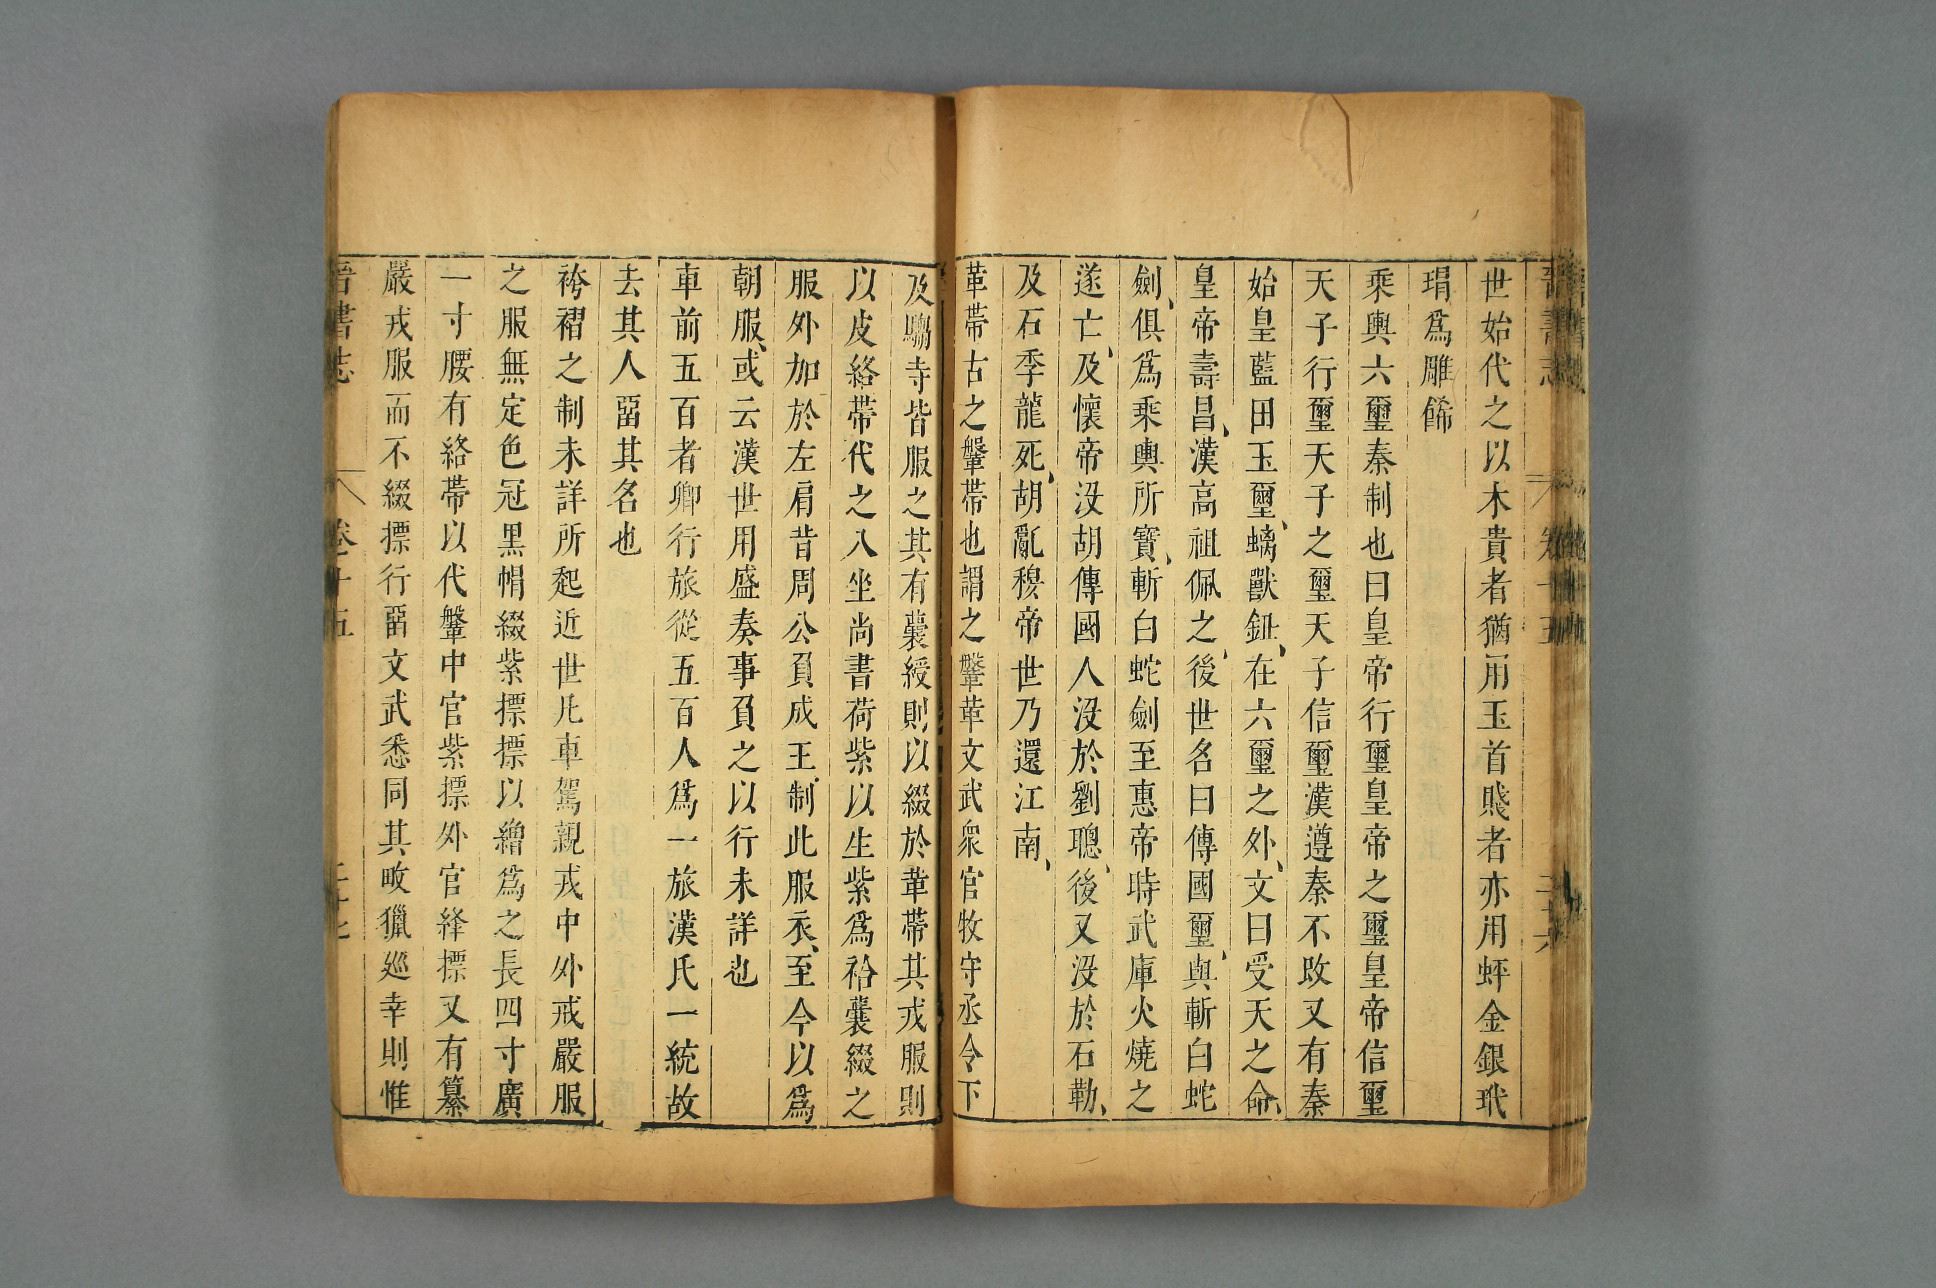 世始代之以木貴者猶用玉首賤者亦用蚌金銀玳
瑁爲雕飾
乘輿六璽秦制也曰皇帝行璽皇帝之璽皇帝信璽
天子行璽天子之璽天子信璽漢遵秦不改又有秦
始皇藍田玉璽、螭獸鈕、在六璽之外、文曰受天之命、
皇帝壽昌、漢高祖佩之、後世名曰傳國璽、與斬白蛇
劍、俱爲乘輿所寶、斬白蛇劍至惠帝時武庫火燒之
遂亡、及懷帝没胡傳國人没於劉聰、後又没於石勒、
及石季龍死、胡亂穆帝世乃還江南、
革帶古之鞶帶也謂之鞶革文武衆官牧守丞令下
及騶寺皆服之其有囊綬則以綴於革帶其戎服則
以皮絡帶代之八坐尚書荷紫以生紫爲袷囊綴之
服外加於左肩昔周公負成王制此服衣、至今以爲
朝服、或云漢世用盛奏事負之以行未詳也
車前五百者卿行旅從五百人爲一旅漢氏一統故
去其人畱其名也
袴褶之制未詳所起近世凡車駕親戎中外戒嚴服
之服無定色冠黑帽綴紫摽摽以繒爲之長四寸廣
一寸腰有絡帶以代鞶中官紫摽外官絳摽又有纂
嚴戎服而不綴摽行畱文武悉同其畋獵巡幸則惟
晉書志 卷十五 二十七